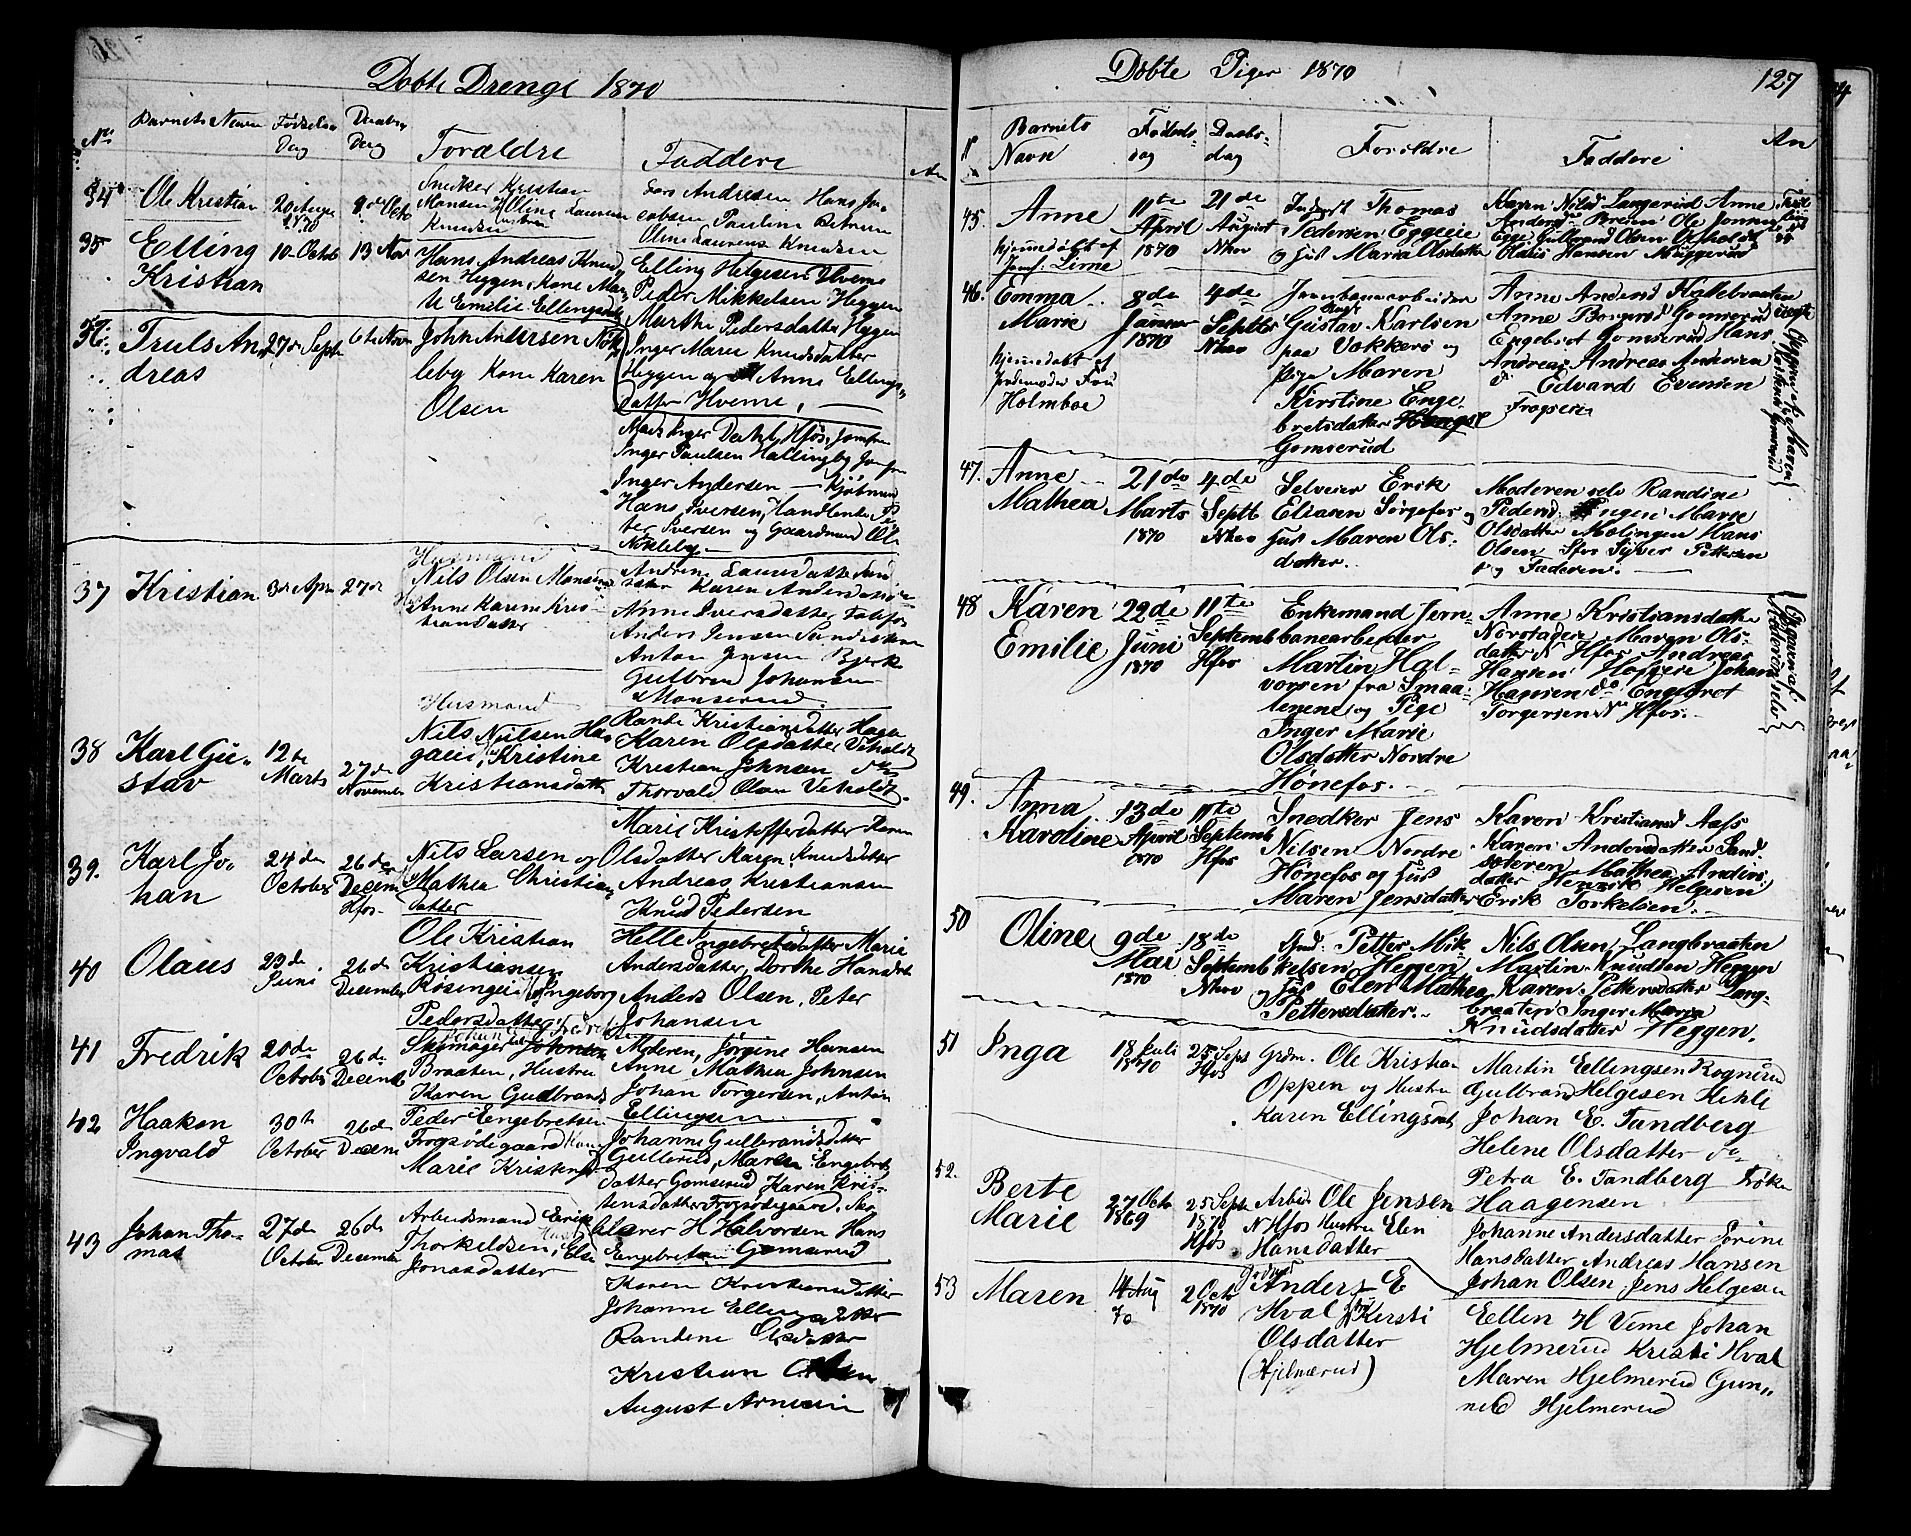 Døbte Drenge 1870
No Barnets Navn Fødselsdag Daabsdag Forældre Faddere An
34 Ole Kristian 20 August 1870 9de Octo
Snedker Kristian
Hansen Hustru Oline Laurense
Knudsen
Lars Andresen Hans Ja-
cobsen Pauline Petrine
Oline Laurens Knudsen
35 Elling Kristian 10 Octob 13 Nov
Hans Andreas Knud
sen Heggen, Kone Mar
Emilie Ellingsdtr
Elling Helgesen Hveme
Peder Mikkelsen Heggen
Marthe Pedersdatter Heggen
Inger Marie Knudsdatter
Heggen og Anne Ellings-
datter Hveme,
36 Truls Andreas 27de Septr 6te Nov
John Andersen Nøk
leby Kone Karen
Olsen
Inger Paulsen Hallingby
Inger Andersen Kjøbmand
Hans Iversen, Handlende Pe
ter Iversen og Gaardmand Ole
Nökleby
37 Kristian 3de Apr 27de
Husmand
Nils Olsen
Anne Karine Kris-
tiansdatter
Karen Andersdatter
Anne Iversdatter
Anders Jensen
Anton Jensen Bjerk
Gulbrand Johansen
38 Karl Gustav 12te Marts 27de November
Husmand
Nils Nielsen
Kristine
Kristiansdatter
Kristiansdatter
Karen Olsdatter Veholdt
Kristian Johnsen do
Thorvald Olsen Veholdt
39. Karl Johan 24de October 26de Decem Hfos
Nils Larsen og
Mathea Christian
datter
Marie Kristoffersdatter Karen
Olsdatter Karen Knudsdatter
Andreas Kristiansen
Knud Pedersen
40 Olaus 29de Juni 26de December
Ole Kristian
Kristiansen
Røsingeie Ingeborg
Pedersdatter
Helle Ingebretsdatter Marie
Andersdatter, Dorthe Hansdt
Anders Olsen, Peter
Johansen
41 Fredrik 20de October 26de Decemb
Skomager
Braaten, Hustru
Karen Gudbrands
Moderen, Jørgine Hansen
Anne Mathea Johnsen
Johan Torgersen, Anton
Ellingsen
42 Haakon Ingvald 30te October 26de Decem
Peder Engebretsen
Frogsødegaard Kone
Marie Kristens
Johanne Gulbrandsdatter
Gullerud, Maren Engebret
datter Gomserud Karen Kris-
tensdatter Frogsødegaard,
H Halvorsen Hans
Engebretsen Gomserud
43 Johan Thomas 27de October 26de December
Arbeidsmand Erik
Thorkeldsen, Else
Jonasdatter
Karen Kristiansdatter
Johanne Ellingsdatter
Randine Olsdatter
Kristian Olsen
August Arnesen
Døbte Piger 1870 127
N Barnets Navn Fødselsdag Daabsdag Forældre Faddere An
45. Anne 11te April 1870 21de August Nhov
hjemmedøbt af
Jomf. Lime
Thomas
Pedersen Eggeeie
og Hus Maria Olsdatter
Karen Nilsd Langerud Anne
Andersd Bræen Ole Jonsen
Egge Gulbrand Olsen Veholdt
Hansen Muggerud
46. Emma Marie 8de Januar 1870 4de Septbr Nhov
hjemmedøbt af
Jordemoder Fru
Holmboe
Jernbanearbeider
Gustav Karlsen
paa Vækkerø og
Pige Maren
Kirstine Enge-
bretsdatter
Gomserud
Anne Andersd Hallebraaten
Anne Borgersd Gomserud
Engebret Gomserud Hans
Andreas Andreas Andersen
Edvard Evensen
Frogseie
47. Anne Mathea 21de Marts 1870 4de Septb Nhov
Selveier Erik
Eliasen Sørgefos og
Hus Maren Ols-
datter.
Moderen selv Randine
Pedersd. Marie
Olsdatter Molingen Hans
Olsen Sfos Syver Pettersen
og Faderen.
48 Karen Emilie 22de Juni 1870 11te Septemb Hfos
Enkemand Jern-
banearbeider
Martin Hal-
vorsen fra Smaa-
lenene og Pige
Inger Marie
Olsdatter Nordre
Hønefos.
Anne Kristiansdatter
Maren Ols-
datter N Hfos Andreas
Hansen Hofseie Johan
Hansen do Engebret
Torgersen N Hfos.
49. Anna Karoline 13de April 1870 11te Septemb Hfos
Snedker Jens
Nilsen Nordre
Hönefos og Hus
Maren Jensdatter
Karen Kristiansd Aass
Karen Andersdatter Sand-
Mathea Anders
datter Henrik Helgesen
Erik Torkelsen.
50 Oline 9de Mai 1870 18de Septemb Nhov
Gmd: Petter Mik
kelsen Heggen
og Hus Elen Mathea
Pettersdatter.
Nils Olsen Langbraaten
Martin Knudsen Heggen
Karen Pettersdatter Lang-
braaten Inger Maria
Knudsdatter Heggen.
51 Inga 18 Juli 1870 25 Sept Hfos
Grdm. Ole Kristian
Oppen og Hustru
Karen Ellingsdt
Martin Ellingsen Rognerud
Gulbran Helgesen Kihle
Johan E. Tandberg
Helene Olsdatter do
Petra E. Tandberg Frøken
Haagensen
52. Berte Marie 27 Octo 1869 25 Sept 1870 Hfos
Arbm Ole Jensen
N Hfos Hustru Elen
Hansdatter
Johanne Andersdatter Sørine
Hansdatter Andreas Hansen
Johan Olsen, Jens Helgesen
53 Maren 14 Aug 70 2 Octo 1870
Anders E
Hval Kersti
Olsdatter
(Hjelmerud)
Ellen H Veme Johan
Hjelmerud Kristi Hval
Maren Hjelmerud Gun-
nild Hjelmerud